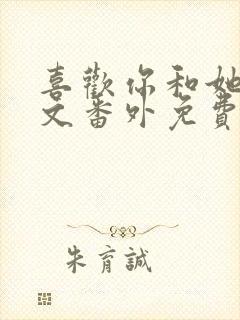 喜歡你和她
文番外免費
朱育誠